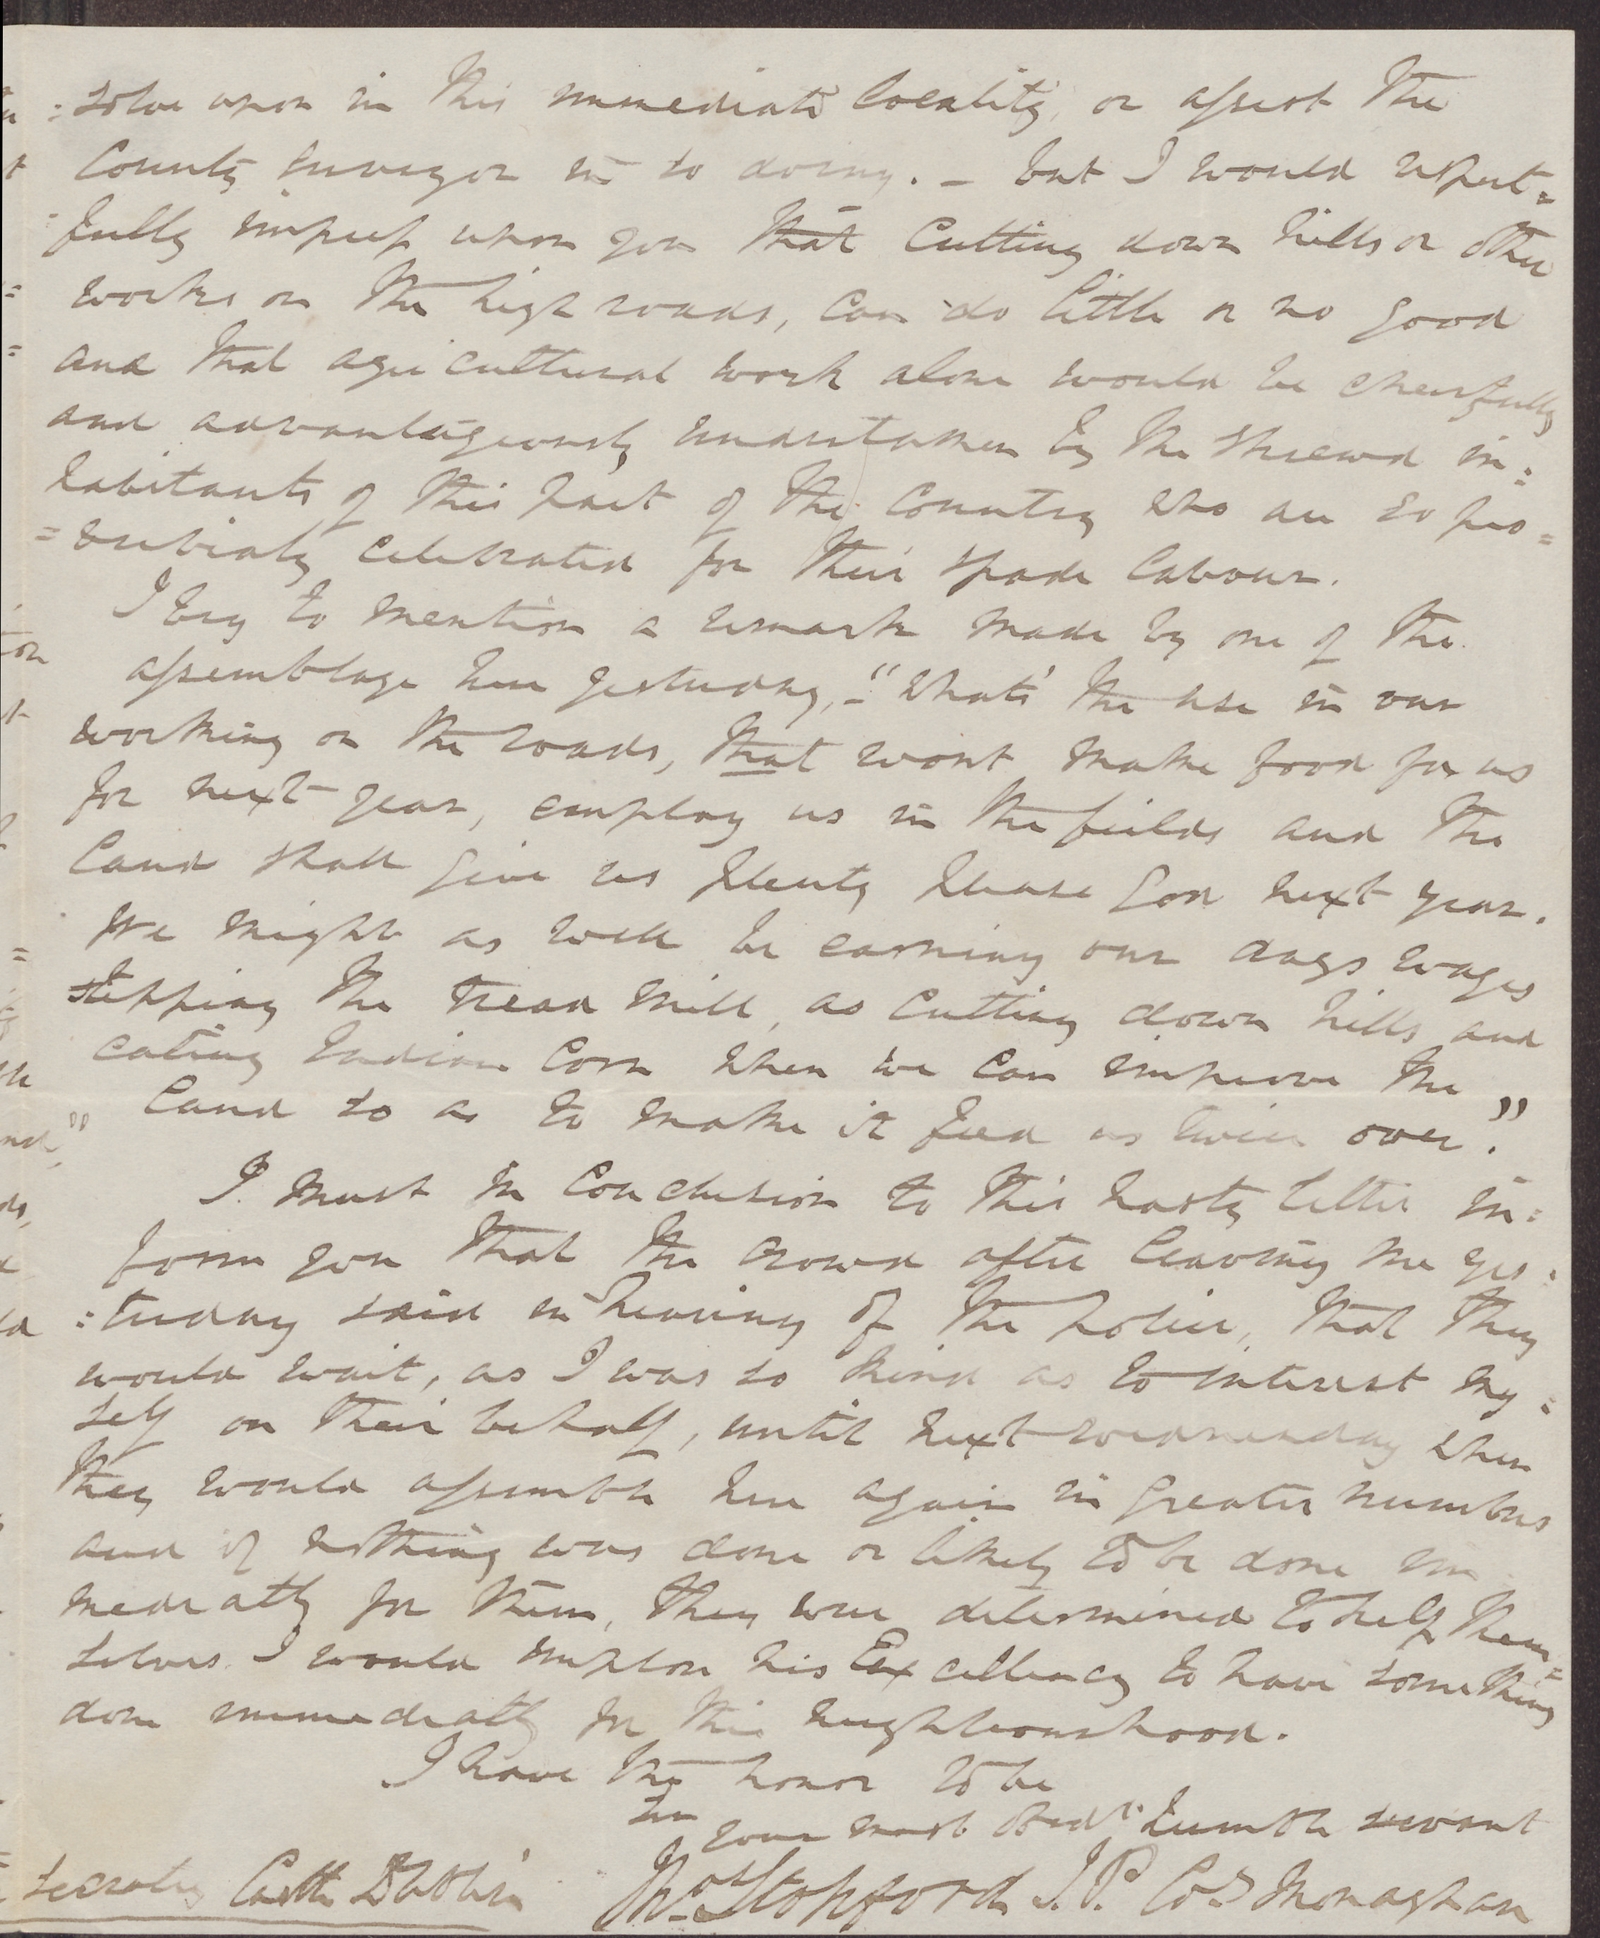 :solve upon in this immediate locality, or assist the
County Surveyor in so doing. – but I would respect=
fully impress upon you that cutting down hills or other
works on the high roads, can do little or no good
and that agricultural work alone would be cheerfully
and advantageously undertaken by the shrewd in:
habitants of this part of the Country who are so pro=
=verbialy celebrated for their spade labour.
I beg to mention a remark made by one of the
assemblage here yesterday, – "What's the use in our
working on the roads, that wont make food for us
for next year, employ us in the fields and the
land shall give us plenty please God next year.
We might as well be earning our days wages
stepping the tread mill, as cutting down hills and
eating Indian Corn when we can improve the
land so as to make it feed us twice over."
I must in conclusion to this hasty letter in:
form you that the crowd after leaving me yes:
:terday said in hearing of the police, that they
would wait, as I was so kind as to interest my:
self on their behalf, until next Wednesday when
they would assemble here again in greater numbers
and if nothing was done or likely to be done im
mediatly for them, they were determined to help them=
selves. I would implore his Excellency to have something
done immediatly for this neighbourhood.
I have the honor to be
Sir
your most obedt. humble servant
Stopford J.P. Co. Monaghan
Secretary Castle Dublin